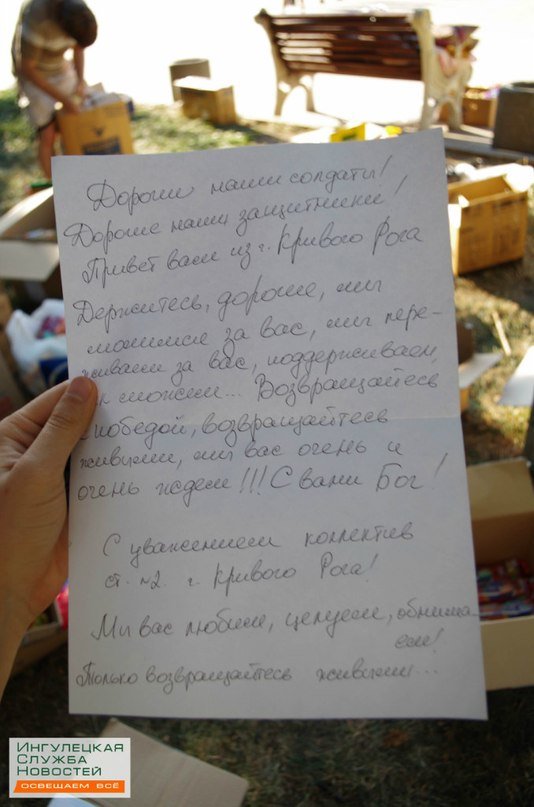 Дорогие наши солдаты!
Дорогие наши защитники!
Привет вам из г. Кривого Рога
Держитесь, дорогие, мы
молимся за вас, мы пере-
живаем за вас, поддерживаем,
как можем... Возвращайтесь
с победой, возвращайтесь
живыми, мы вас очень и
очень ждем!!! С вами Бог!
С уважением коллектив
ст. №2 г. Кривого Рога!
Ми вас любим, целуем, обнима-
ем!
Только возвращайтесь живыми...
ИНГУЛЕЦКАЯ
СЛУЖБА
НОВОСТЕЙ
ОСВЕЩАЕМ ВСЁ